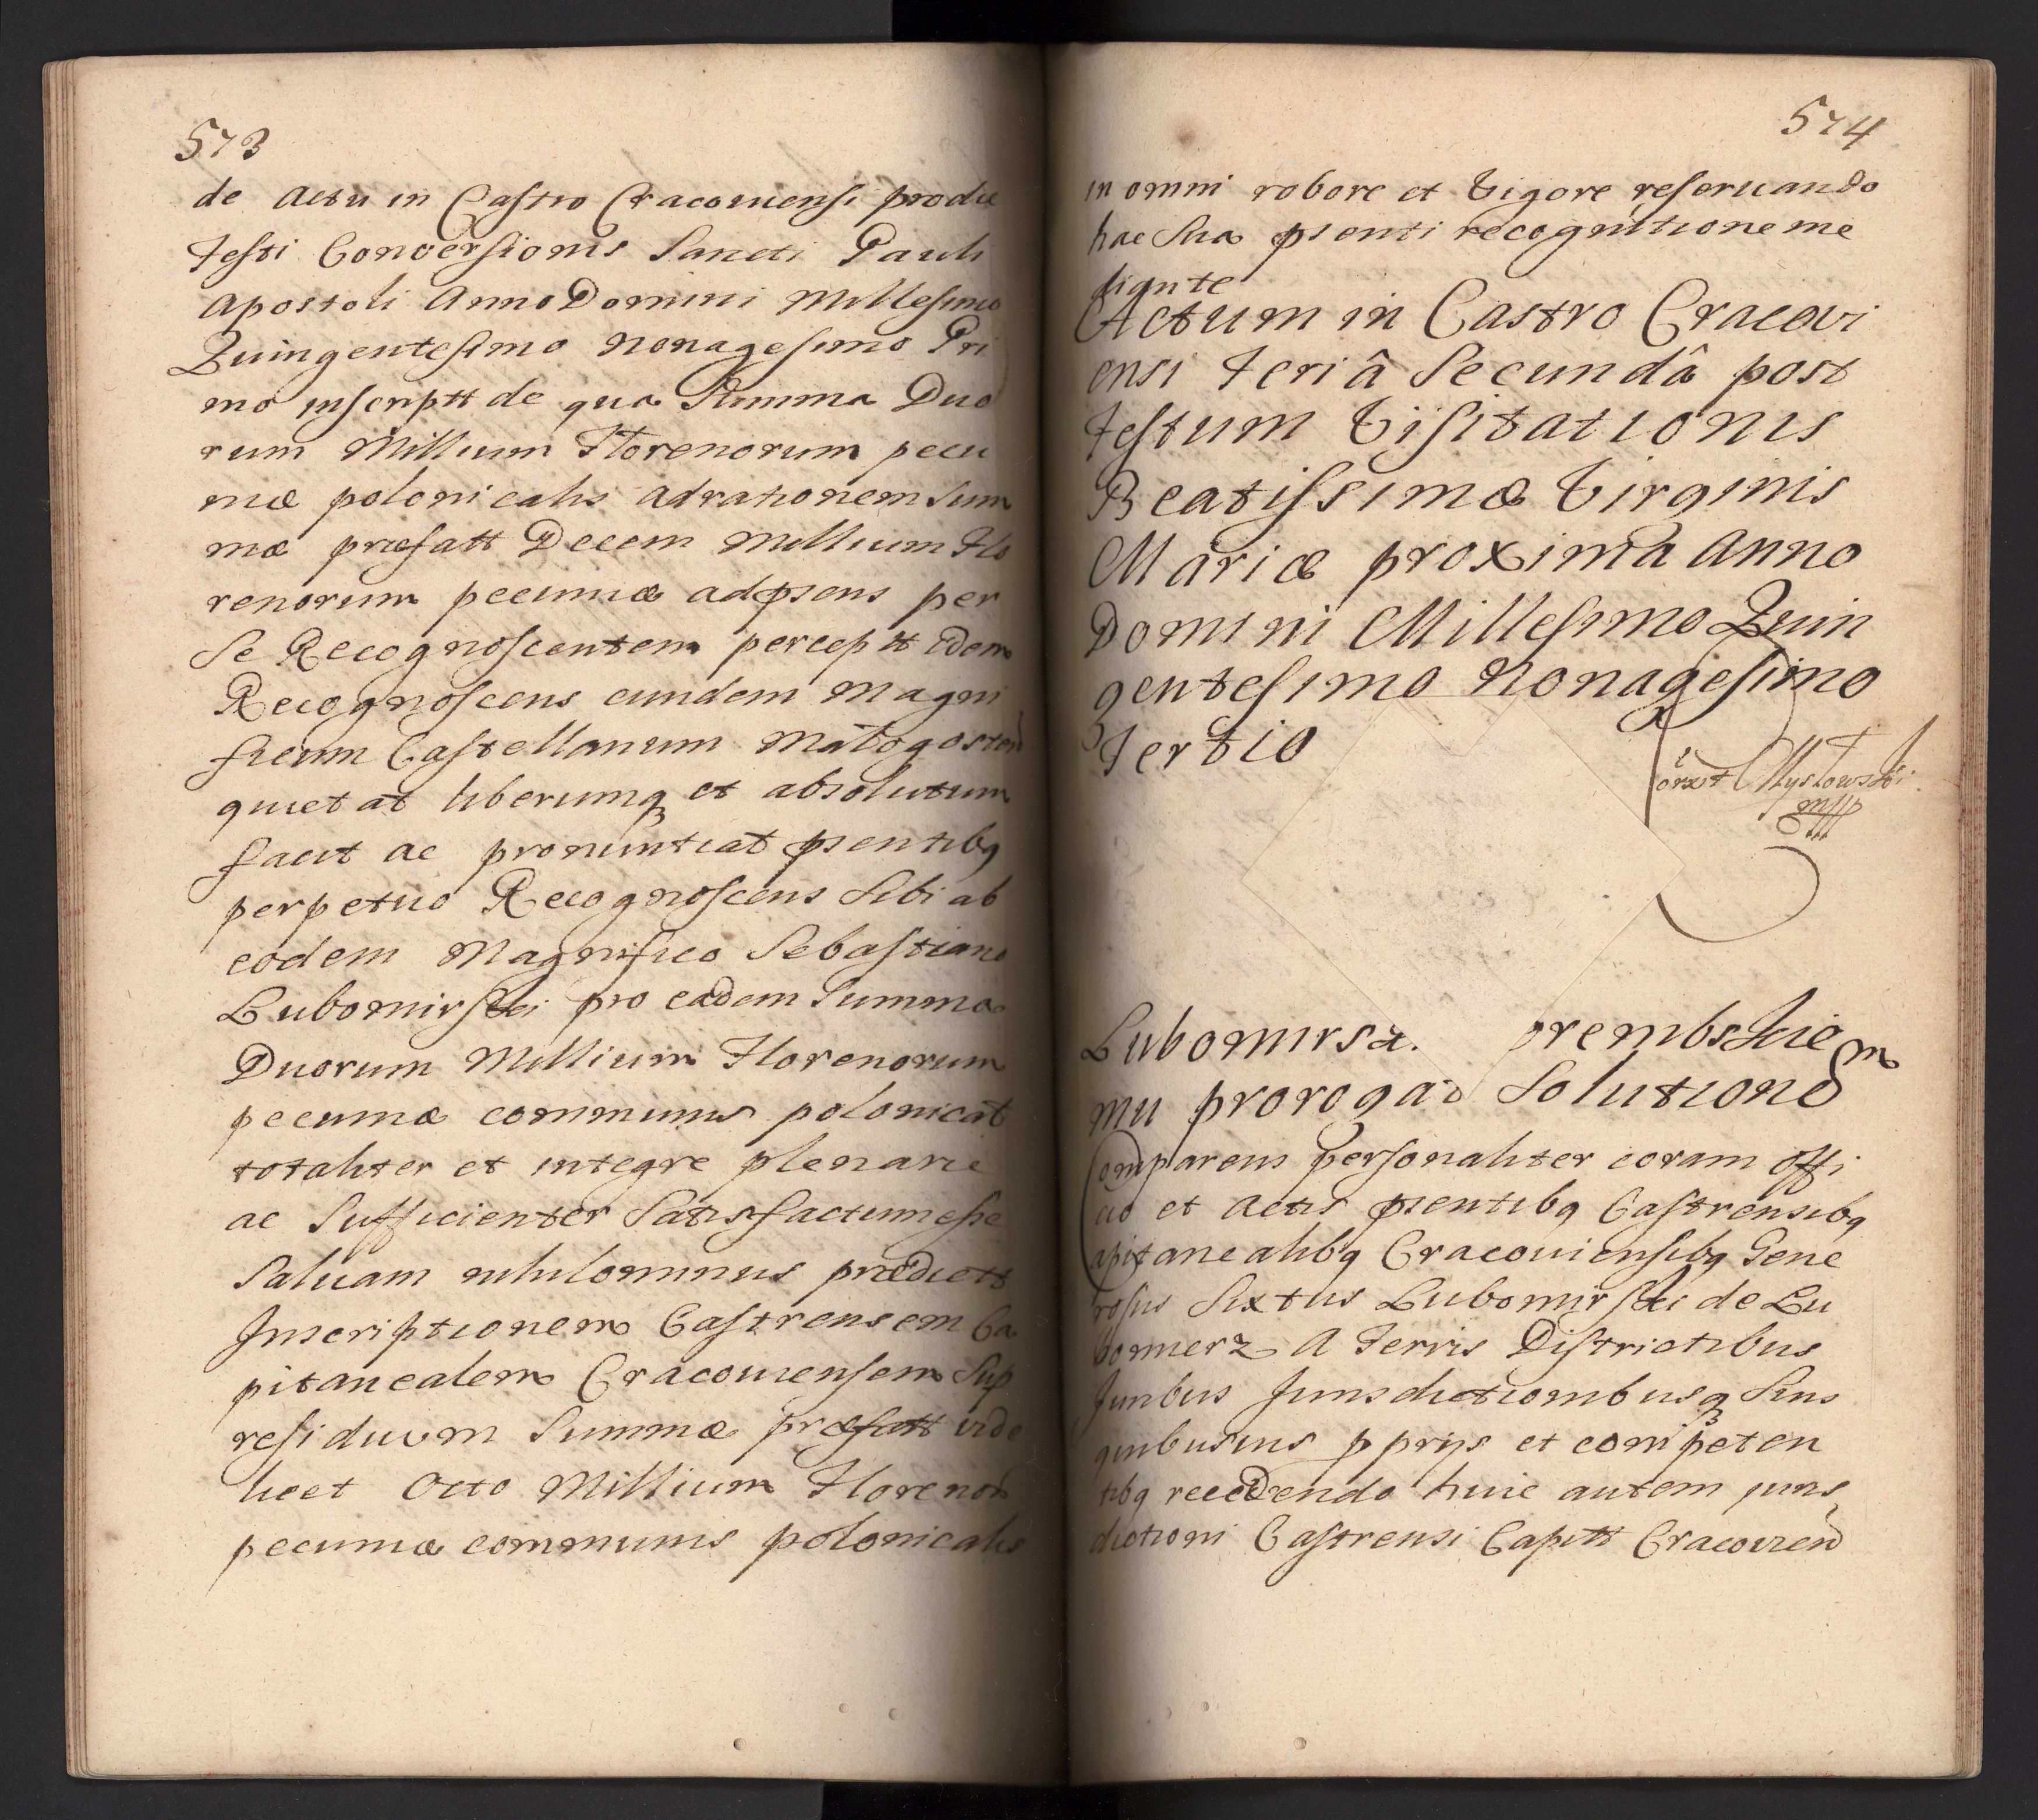 573
de actu in Castro Cracouiensi prodie
Festi Conversionis Sancti Pauli
Apostoli Anno Domini Millesimo
Quingentesimo Nonagesimo Pri
mo inscriptt de qua Summa Duo
rum Millium Florenorum pecu
niæ polonicalis ad rationem Sum
mæ præfatt Decem Millium Flo
renorum pecuniæ ad psens per
Se Recognoscentem perceptt Idem
Recognoscens eundem Magni
ficum Castellanum Małogosten
quietat liberumq et absolutum
facit ac pronuntiat psentibq
perpetuo Recognoscens Sibi ab
eodem Magnifico Sebastiano
Lubomirski pro eadem Summa
Duorum Millium Florenorum
pecuniæ communis polonicat
totaliter et integre plenarie
ac Sufficienter Satisfactum esse
Saluam nihilominus prædictt
Inscriptionem Castrensem Ca
pitanealem Cracouiensem Sup
residuum Summæ præfatt vide
licet Octo Millium Florenor
pecuniæ communis polonicalis
574
in omni robore et Vigore reseruando
hac Sua psenti recognitione me
diante
Actum in Castro Cracovi
ensi Feriâ Secundâ post
Festum Visitationis
Beatissimæ Virginis
Mariæ proxima Anno
Domini Millesimo Quin
gentesimo Nonagesimo
Tertio
Mysłowski
mpp
Lubomirsz. orembskie
mu prorogad Solutionem
Comparens personaliter coram offi
cio et Actis psentibq Castrensibq
Capitanealibq Cracouiensibq Gene
rosus Sixtus Lubomirski de Lu
bomierz A Terris Districtibus
Juribus Jurisdictionibusq Suis
quibusuis pprijs et competen
tibq recedendo huic autem juris
dictioni Castrensi Capitt Cracovien